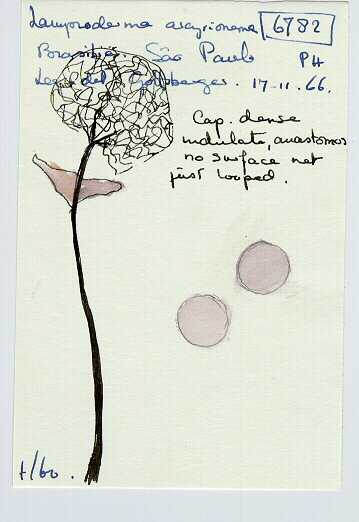 Lamproderma arcyrionema 6782
Brasilia. São Paulo PH
Leg. det. Gottsberger. 17-11.66.
Cap. dense
undulate, anastomos
no surface net
just looped.
t/60.